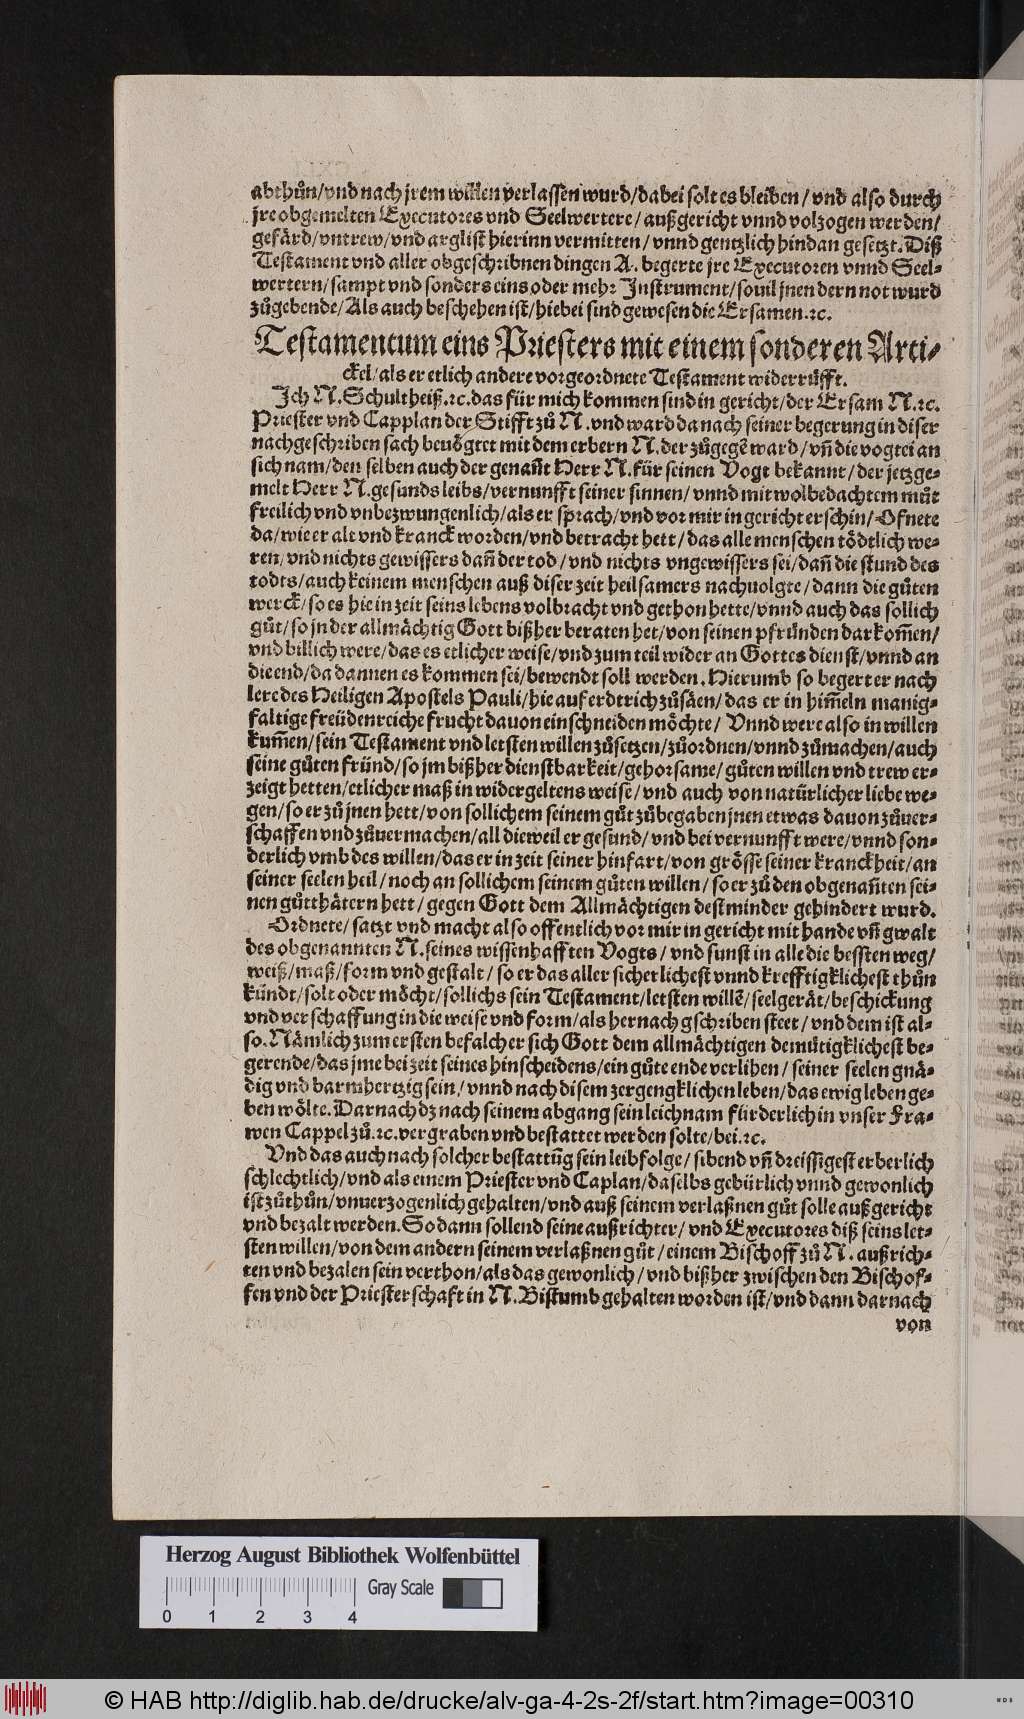 abthůn/vnd nach jrem willen verlassen wurd/dabei solt es bleiben/vnd also durch
jre obgemelten Executores vnd Seelwertere/außgericht vnnd volzogen werden/
gefärd/vntrew/vnd arglist hierinn vermitten/vnnd gentzlich hindan gesetzt. Diß
Testament vnd aller obgeschribnen dingen A. begerte jre Executoren vnnd Seel-
wertern/sampt vnd sonders eins oder mehr Instrument/souil jnen dern not wurd
zůgebende/Als auch beschehen ist/hiebei sind gewesen die Ersamen.ꝛc.
Testamentum eins Priesters mit einem sonderen Arti-
ckel/als er etlich andere vorgeordnete Testament widerrüfft.
Ich N. Schultheiß.ꝛc.das für mich kommen sind in gericht/der Ersam N.ꝛc.
Priester vnd Capplan der Stifft zů N.vnd ward da nach seiner begerung in diser
nachgeschriben sach beuögtet mit dem erbern N.der zůgegē ward/vñ die vogtei an
sich nam/den selben auch der genañt Herr N.für seinen Vogt bekannt/der jetzge-
melt Herr N.gesunds leibs/vernunfft seiner sinnen/vnnd mit wolbedachtem můt
freilich vnd vnbezwungenlich/als er sprach/vnd vor mir in gericht erschin/Ofnete
da/wie er alt vnd kranck worden/vnd betracht hett/das alle menschen tödtlich we-
ren/vnd nichts gewissers dañ der tod/vnd nichts vngewissers sei/dañ die stund des
todts/auch keinem menschen auß diser zeit heilsamers nachuolgte/dann die gůten
werck/so es hie in zeit seins lebens volbracht vnd gethon hette/vnnd auch das sollich
gůt/so jn der allmächtig Gott bißher beraten het/von seinen pfründen dar kom̄en/
vnd billich were/das es etlicher weise/vnd zum teil wider an Gottes dienst/vnnd an
die end/da dannen es kommen sei/bewendt soll werden. Hierumb so begert er nach
lere des Heiligen Apostels Pauli/hie auf erdtrich zůsäen/das er in him̄eln manig-
faltige freüdenreiche frucht dauon einschneiden möchte/Vnnd were also in willen
kum̄en/sein Testament vnd letsten willen zůsetzen/zůordnen/vnnd zůmachen/auch
seine gůten fründ/so jm bißher dienstbarkeit/gehorsame/gůten willen vnd trew er-
zeigt hetten/etlicher maß in widergeltens weise/vnd auch von natürlicher liebe we-
gen/so er zů jnen hett/von sollichem seinem gůt zůbegaben jnen etwas dauon zůuer-
schaffen vnd zůuermachen/all dieweil er gesund/vnd bei vernunfft were/vnnd son-
derlich vmb des willen/das er in zeit seiner hinfart/von grösse seiner kranckheit/an
seiner seelen heil/noch an sollichem seinem gůten willen/so er zů den obgenañten sei-
nen gůtthätern hett/gegen Gott dem Allmächtigen destminder gehindert wurd.
Ordnete/satzt vnd macht also offentlich vor mir in gericht mit hande vñ gwalt
des obgenannten N.seines wissenhafften Vogts/vnd sunst in alle die bessten weg/
weiß/maß/form vnd gestalt/so er das aller sicherlichest vnnd krefftigklichest thůn
kündt/solt oder möcht/sollichs sein Testament/letsten willē/seelgerät/beschickung
vnd verschaffung in die weise vnd form/als hernach gschriben steet/vnd dem ist al-
so. Nämlich zum ersten befalch er sich Gott dem allmächtigen demütigklichest be-
gerende/das jme bei zeit seines hinscheidens/ein gůte ende verlihen/seiner seelen gnä-
dig vnd barmhertzig sein/vnnd nach disem zergengklichen leben/das ewig leben ge-
ben wölte. Darnach dz nach seinem abgang sein leichnam fürderlich in vnser Fra-
wen Cappel zů.ꝛc.vergraben vnd bestattet werden solte/bei.ꝛc.
Vnd das auch nach solcher bestattūg sein leibfolge/sibend vñ dreissigest erberlich
schlechtlich/vnd als einem Priester vnd Caplan/daselbs gebürlich vnnd gewonlich
ist zůthůn/vnuerzogenlich gehalten/vnd auß seinem verlaßnen gůt solle außgericht
vnd bezalt werden. So dann sollend seine außrichter/vnd Executores diß seins let-
sten willen/von dem andern seinem verlaßnen gůt/einem Bischoff zů N. außrich-
ten vnd bezalen sein verthon/als das gewonlich/vnd bißher zwischen den Bischof-
fen vnd der Priesterschaft in N. Bistumb gehalten worden ist/vnd dann darnach
von
Herzog August Bibliothek Wolfenbüttel
Gray Scale
0 1 2 3 4
© HAB http://diglib.hab.de/drucke/alv-ga-4-2s-2f/start.htm?image=00310
WDB